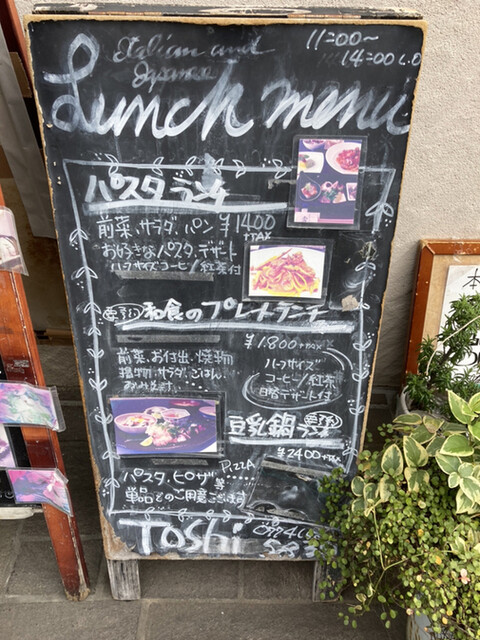 Italian and
Japanese
11:00~
14:00 L.O
Lunch menu
パスタランチ
前菜、サラダ、パン ¥1400
+TAX
お好きなパスタ、デザート
ハーフサイズコーヒー/紅茶付
要予約 和食のプレートランチ
¥1,800+TAX
前菜、お付出、焼物
揚物、サラダ、ごはん、
おみそ汁
ハーフサイズ
コーヒー/紅茶
日替デザート付
豆乳鍋ランチ
要予約
¥2400+TAX
PIZZA
パスタ、ピザ等
単品でのご用意ございます
Toshi
本